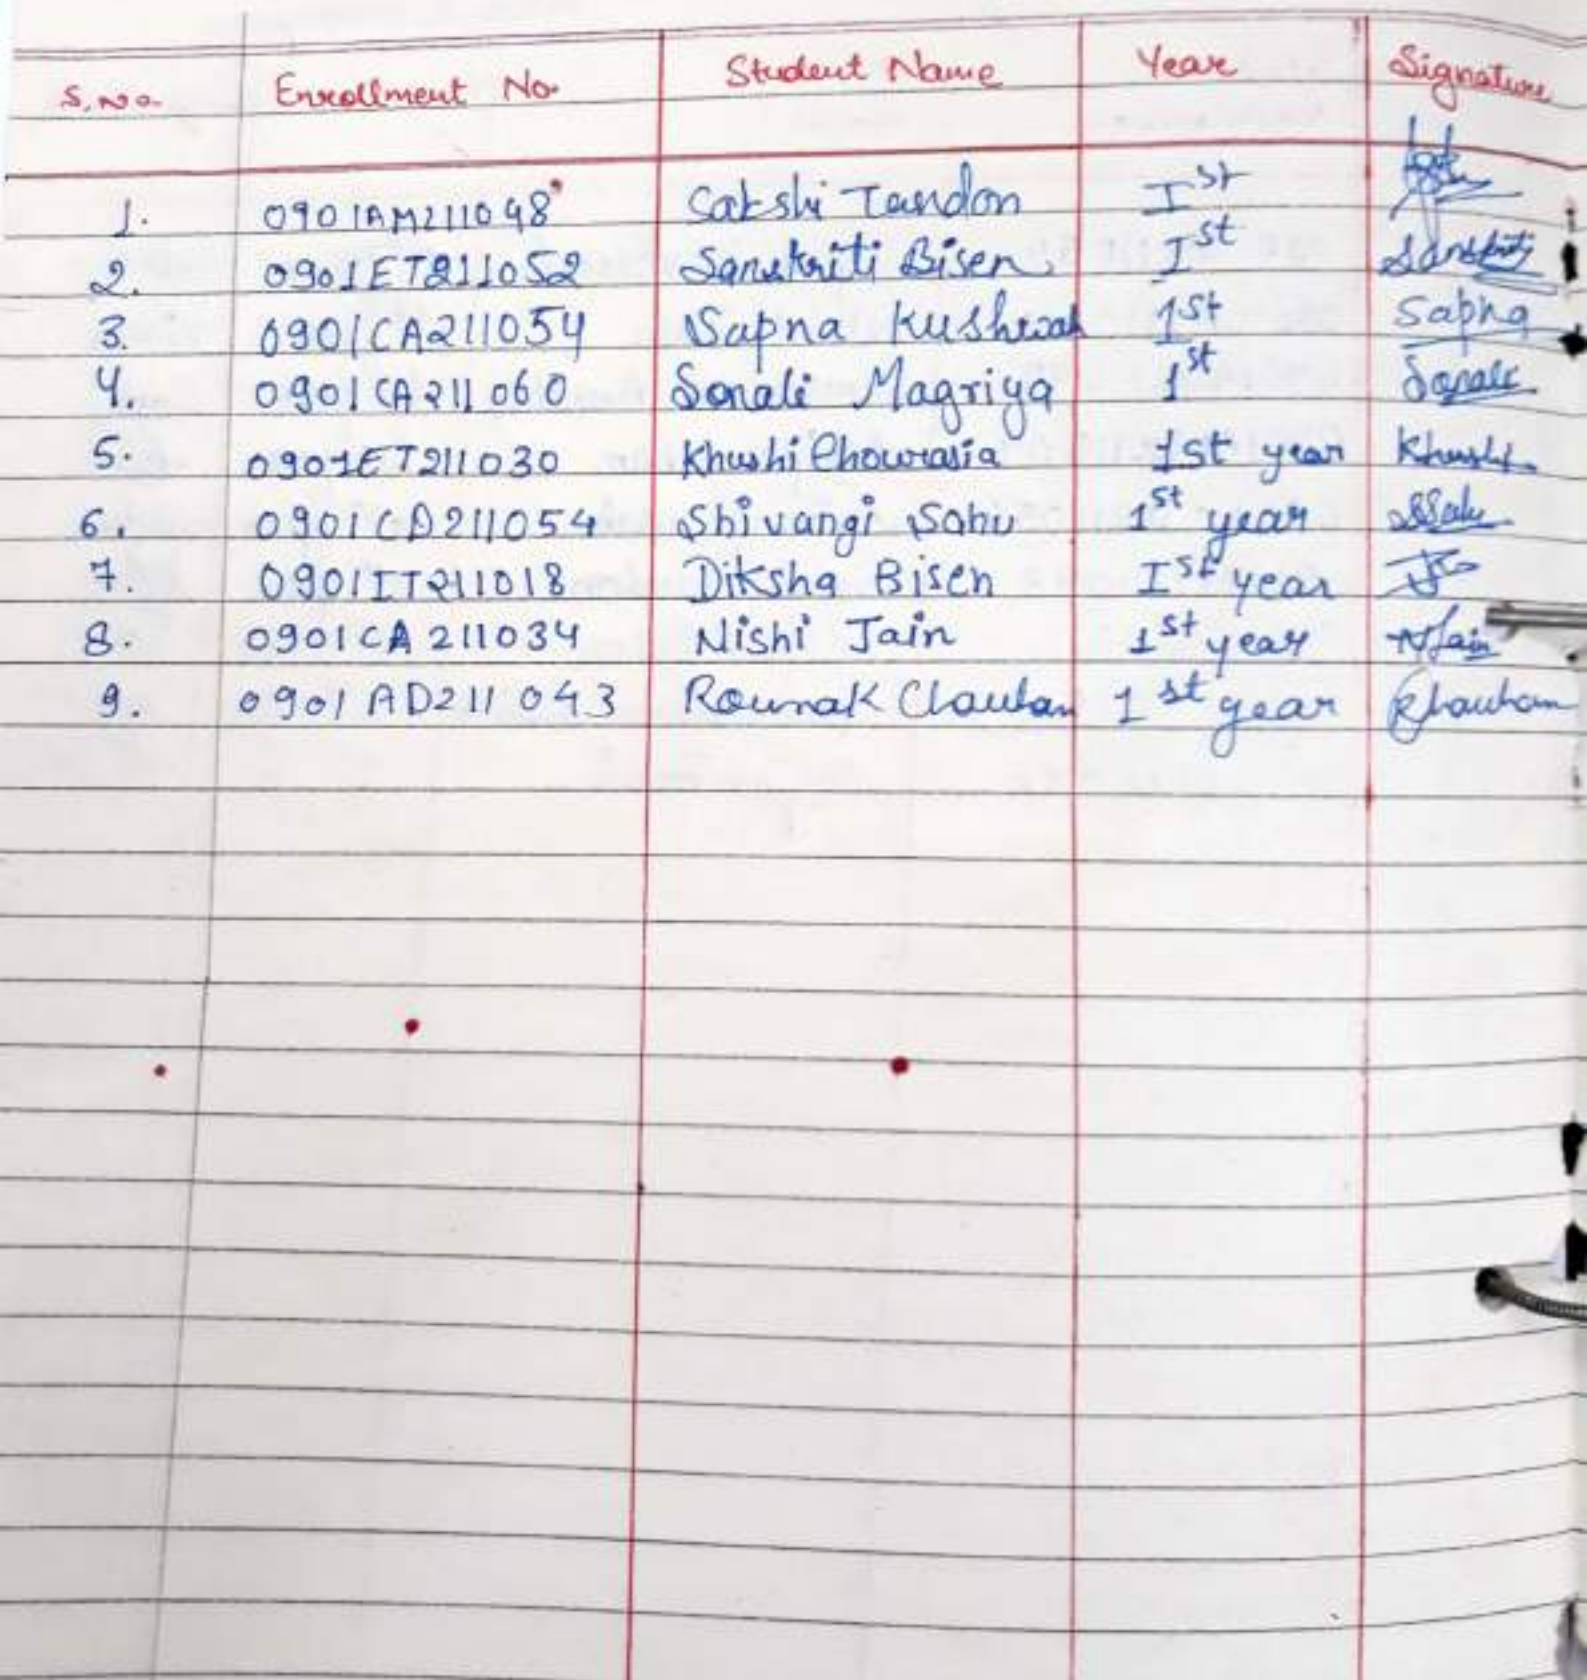 S.No. Enrollment No. Student Name Year Signature
1. 0901AM211048 Sakshi Tandon Ist
2. 0901ET211052 Sanskriti Bisen Ist Sanskriti
3. 0901CA211054 Sapna Kushwah 1st Sapna
4. 0901CA211060 Sonali Magriya 1st Sonali
5. 0901ET211030 Khushi Chourasia 1st year Khushi
6. 0901CD211054 Shivangi Sahu 1st year SSahu
7. 0901IT211018 Diksha Bisen Ist year
8. 0901CA211034 Nishi Jain 1st year NJain
9. 0901AD211043 Rounak Chauhan 1st year RChauhan